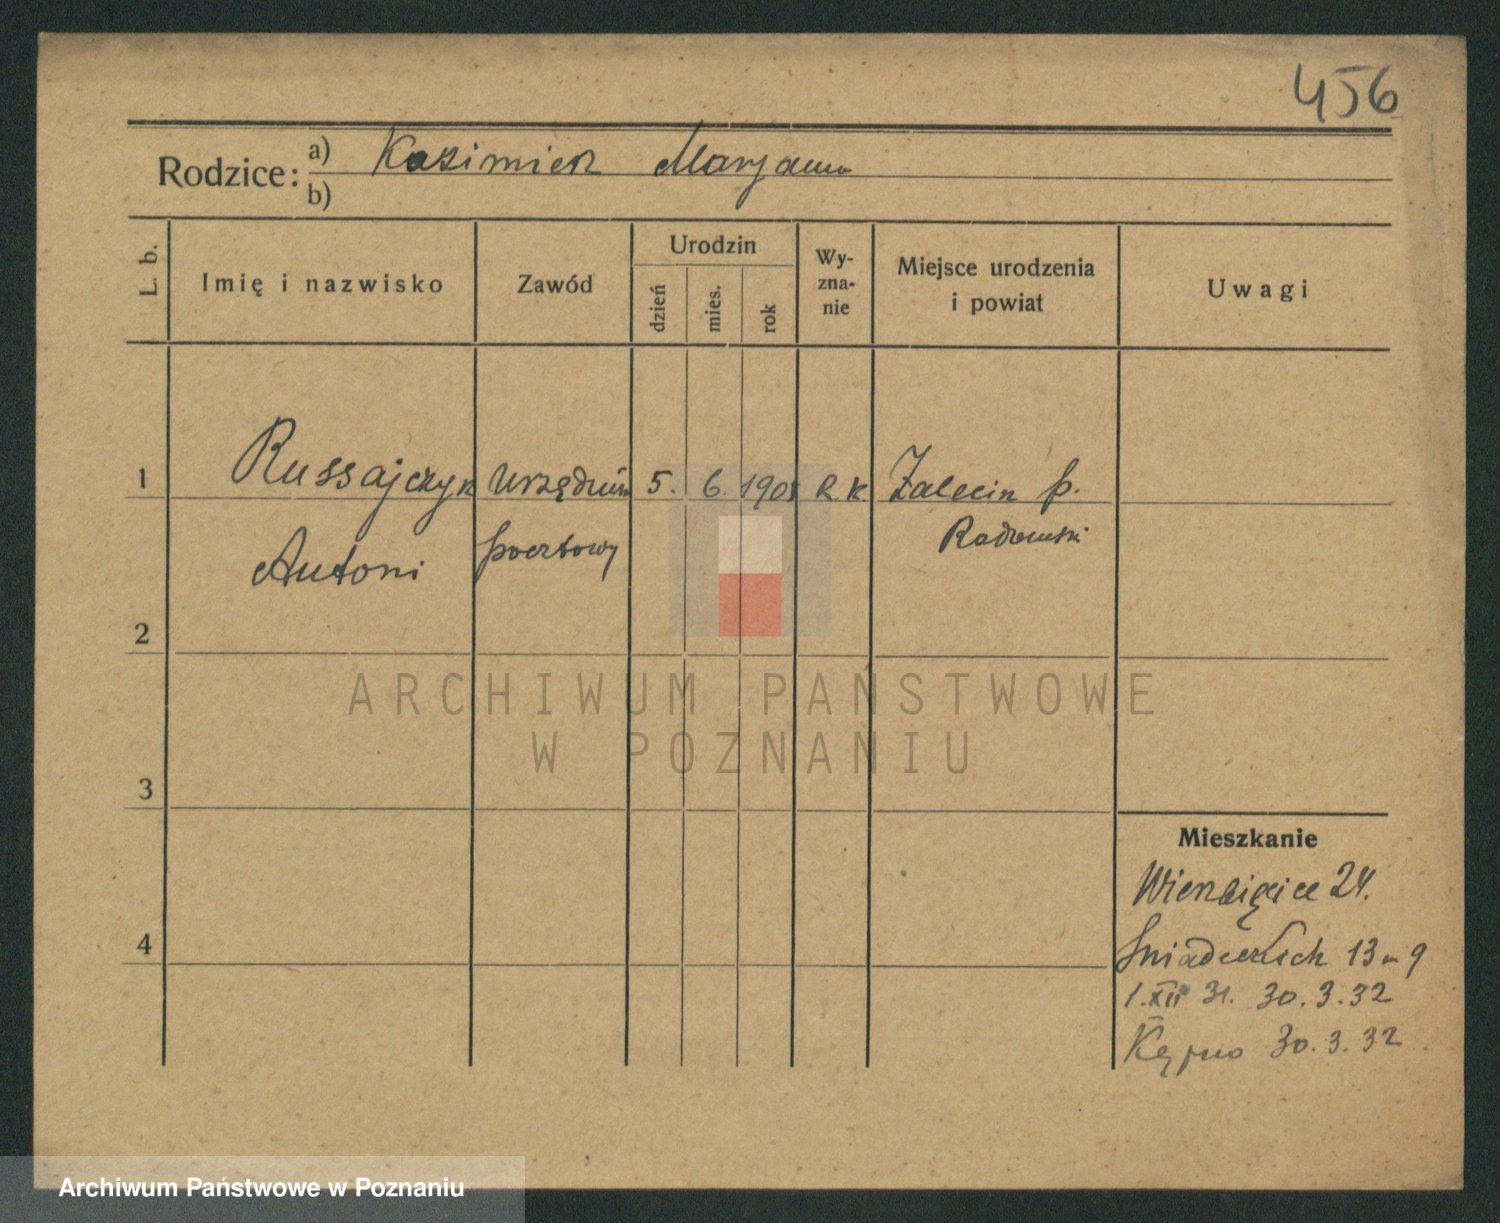 456
Rodzice: a) Kazimierz Maryanna
b)
L. b. Imię i nazwisko Zawód Urodzin Wy-zna-nie Miejsce urodzenia i powiat Uwagi
dzień mies. rok
1 Russajczyk Urzędnik 5. 6. 1901 R. K. p.
Antoni pocztowy
2
3
4
Mieszkanie
Wierzbięcice 24.
Śniadeckich 13 m 9
1. XII 31. 30. 3. 32
Kępno 30. 3. 32
ARCHIWUM PAŃSTWOWE
W POZNANIU
Archiwum Państwowe w Poznaniu